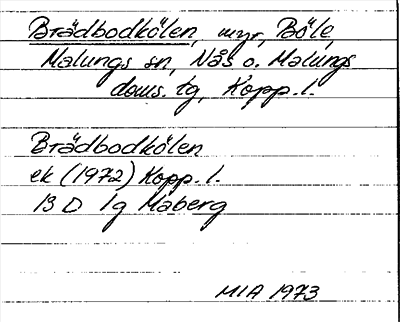 Brädbodkölen, myr, Böle,
Malungs sn, Nås o. Malungs
doms. tg, Kopp. l.
Brädbodkölen
ek (1972) Kopp. l.
13 D 1g Maberg
MIA 1973